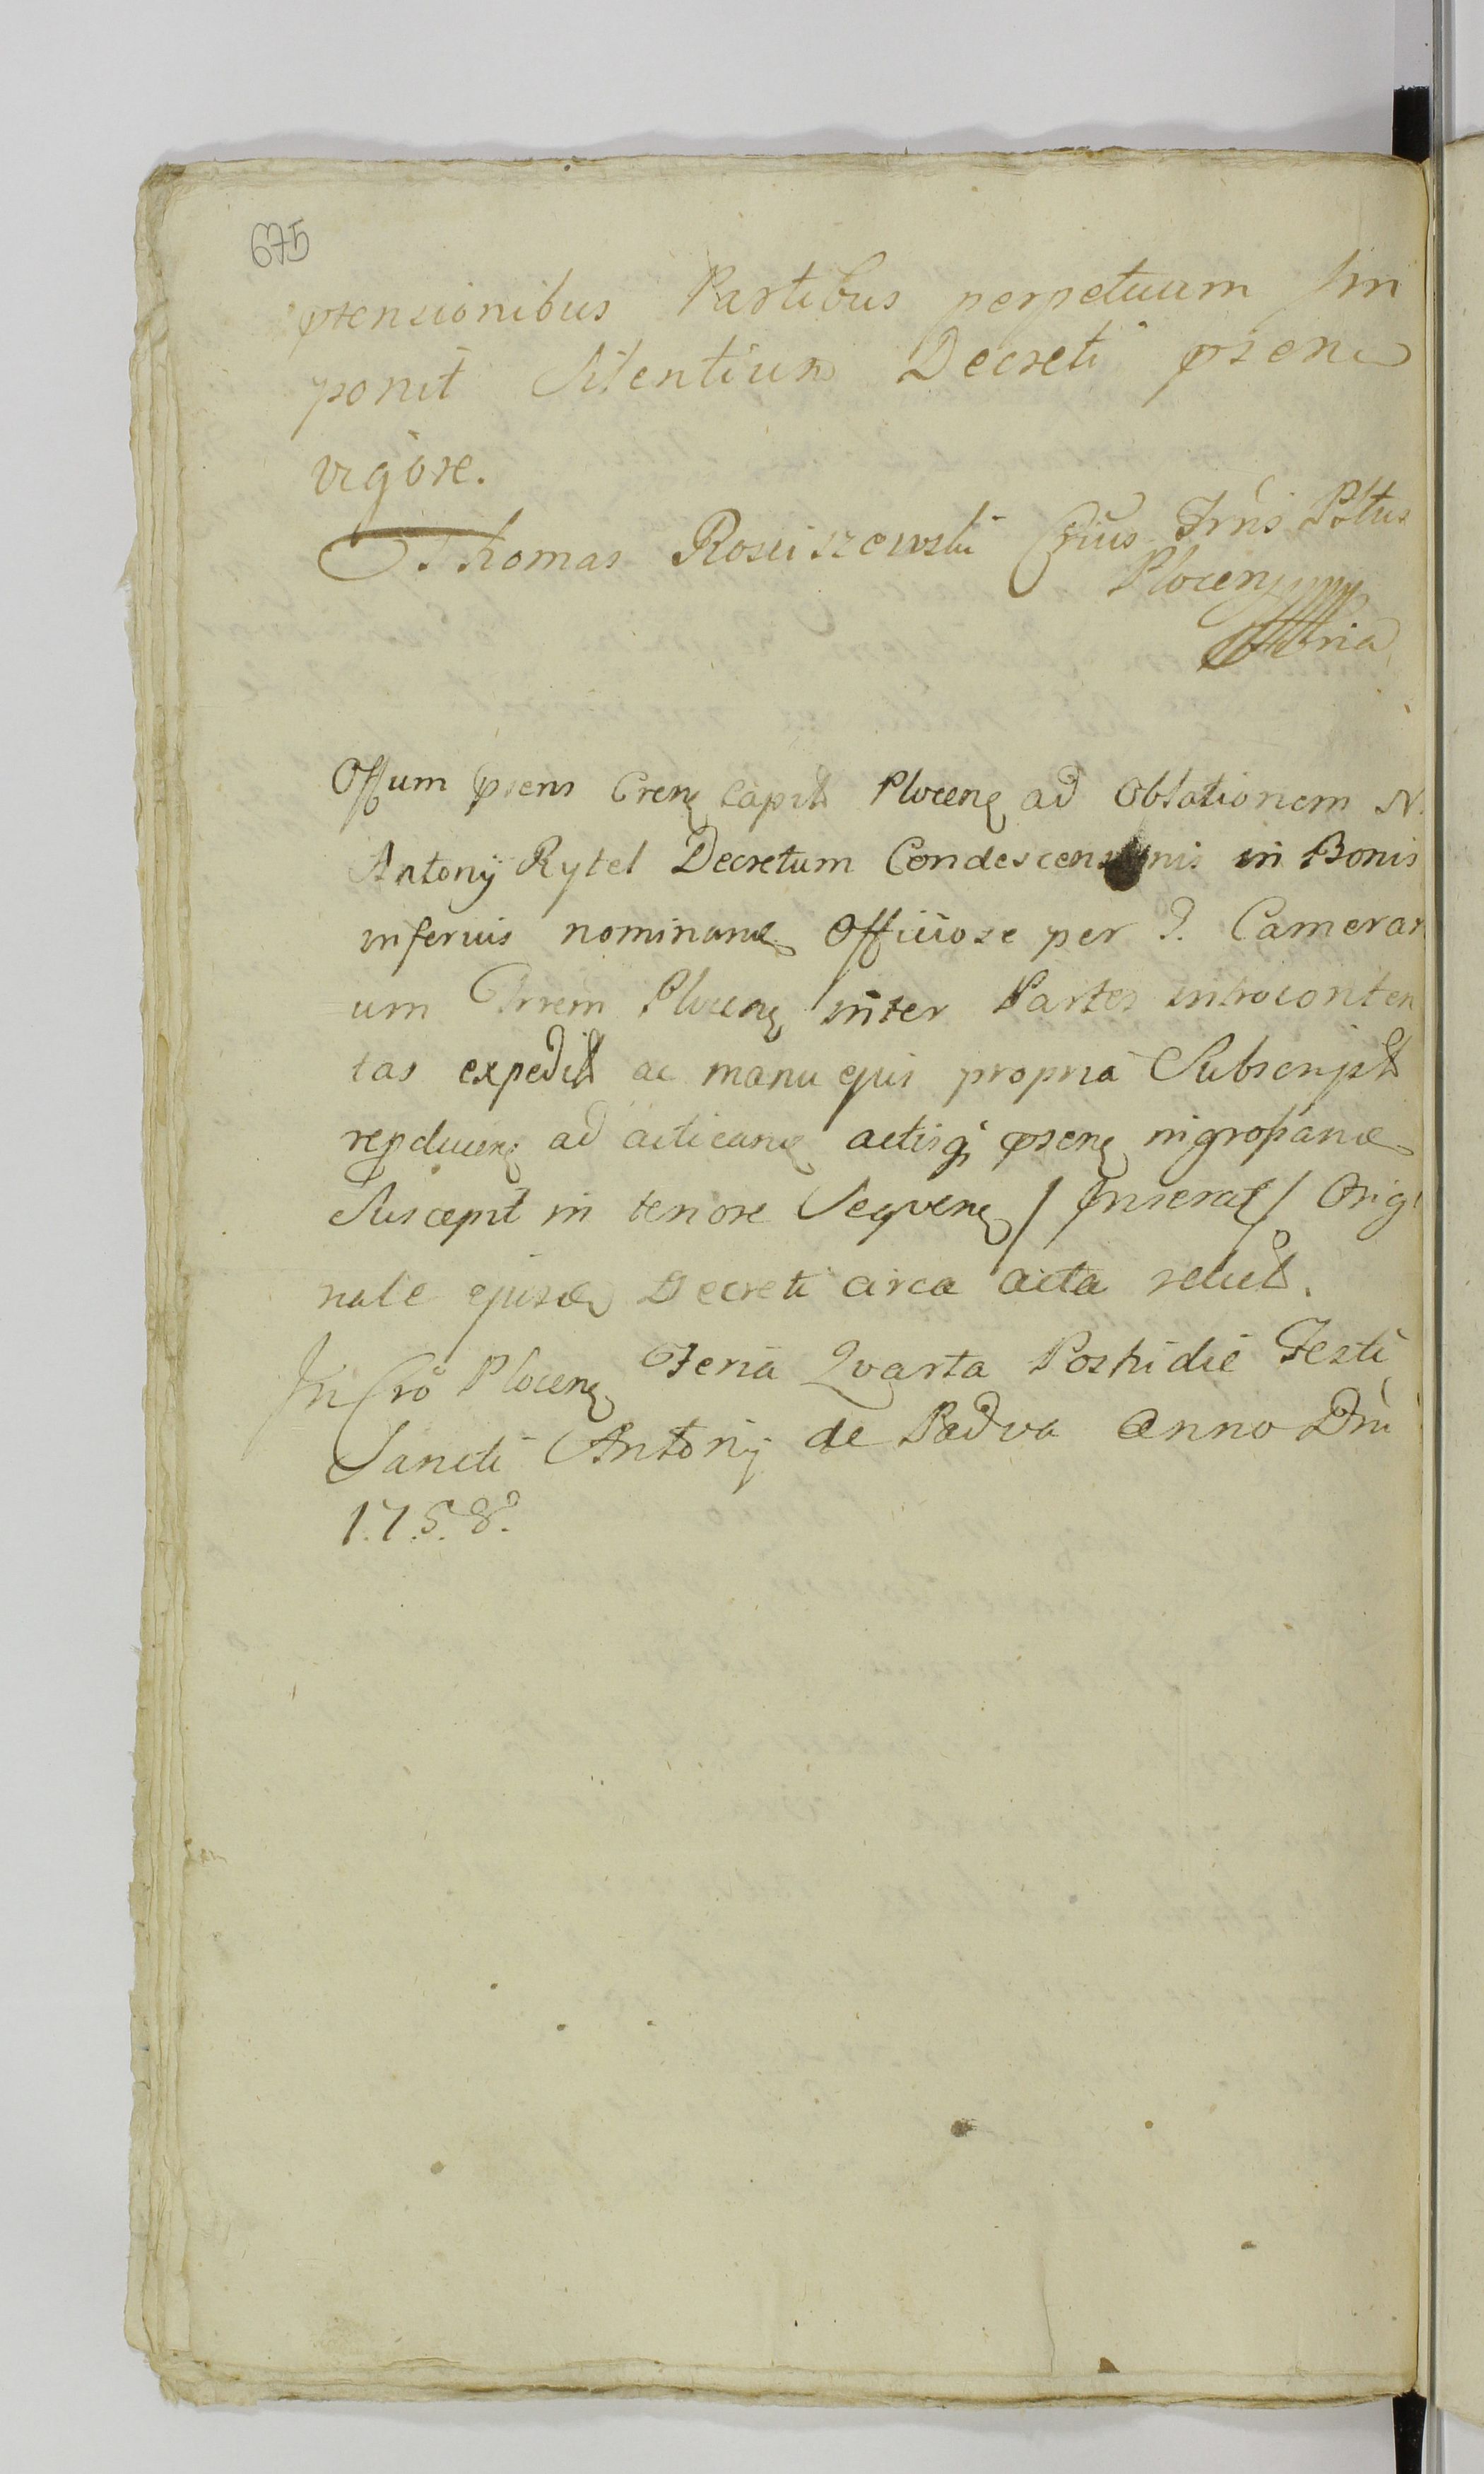 675
ptensionibus Partibus perpetuum Im
ponit Silentium Decreti psen
vigore.
Thomas Rosciszewski Crius Trris Pltus
Plocen
mpria
Offum psens Cren Capit Plocen ad Oblationem N.
Antonij Rytel Decretum Condescensionis in Bonis
inferius nominan Officiose per J. Camerar
um Trrem Plocen inter Partes introconten
tas expedit ac manu ejus propria Subscript
repducen ad acticand actisq psen ingrossand
Suscepit in tenore Seqven / Inserat / Origi
nale ejusd Decreti circa acta relict.
In Cro Plocen Feria Qvarta Postridie Festi
Sancti Antonij de Padva Anno Dni
1.7.5.8.